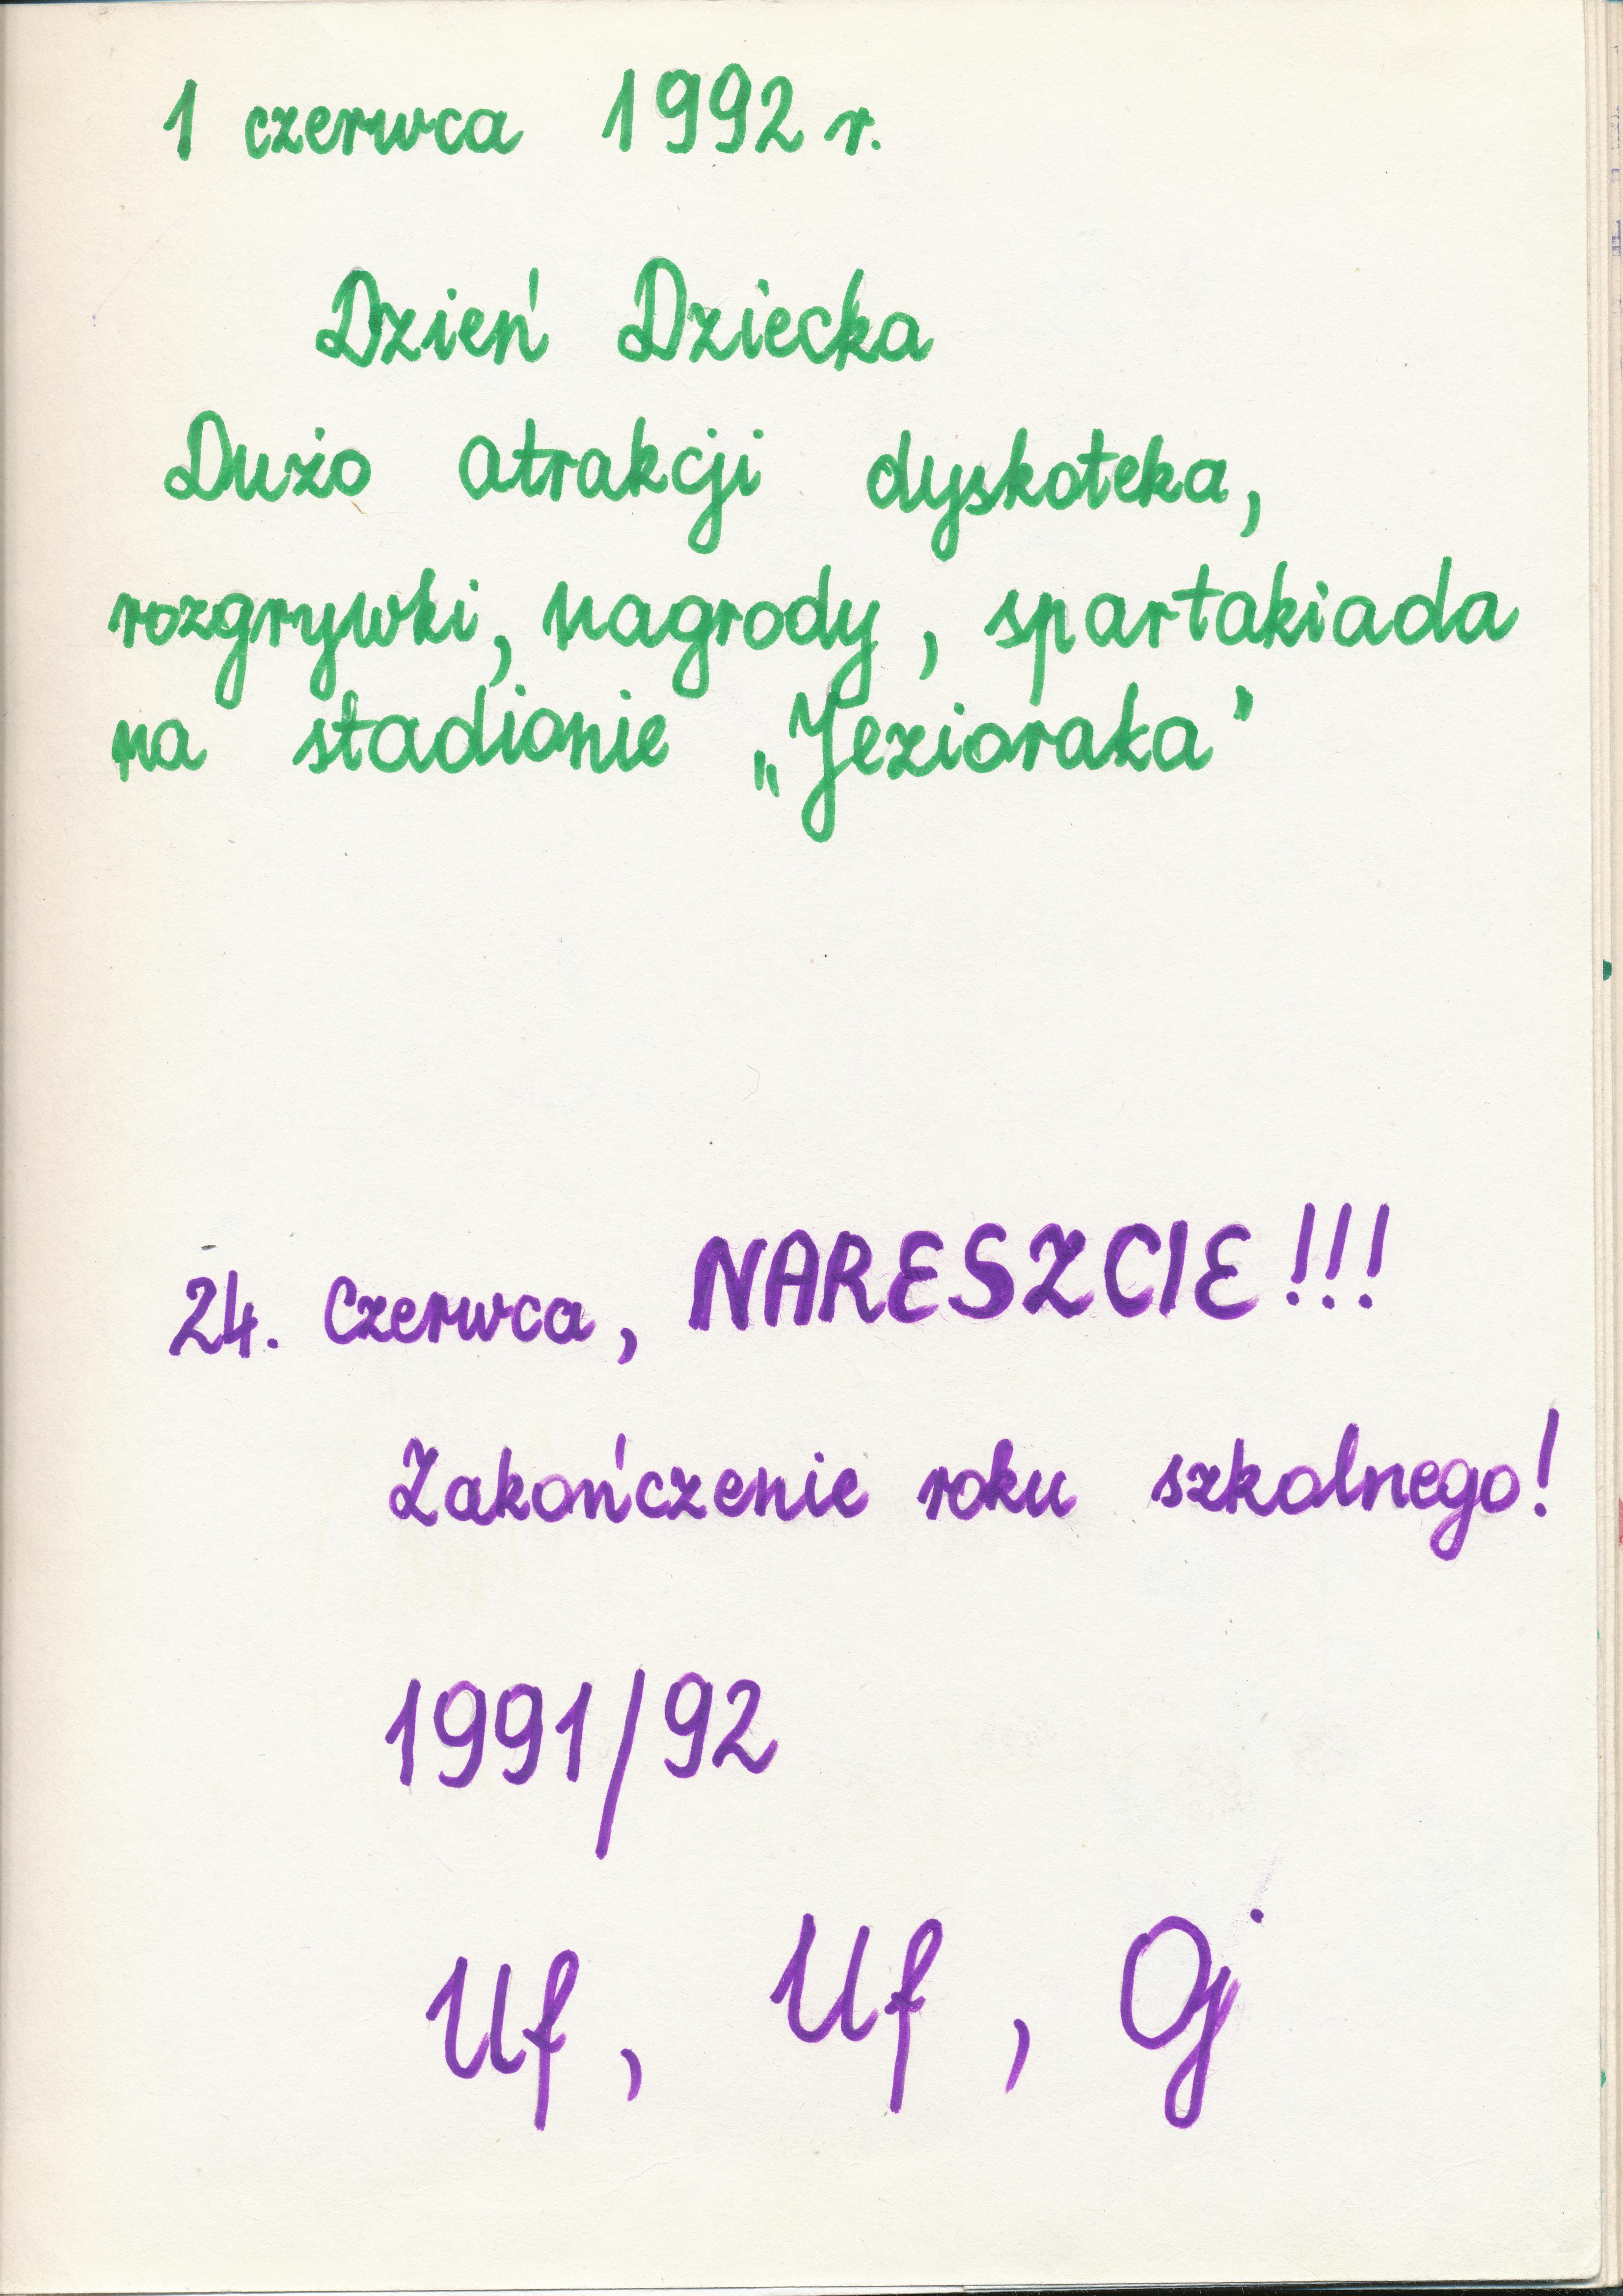 1 czerwca 1992 r.
Dzień Dziecka
Dużo atrakcji dyskoteka,
rozgrywki, nagrody, spartakiada
na stadionie „Jezioraka”
24. Czerwca, NARESZCIE!!!
Zakończenie roku szkolnego!
1991/92
Uf, Uf, Oj